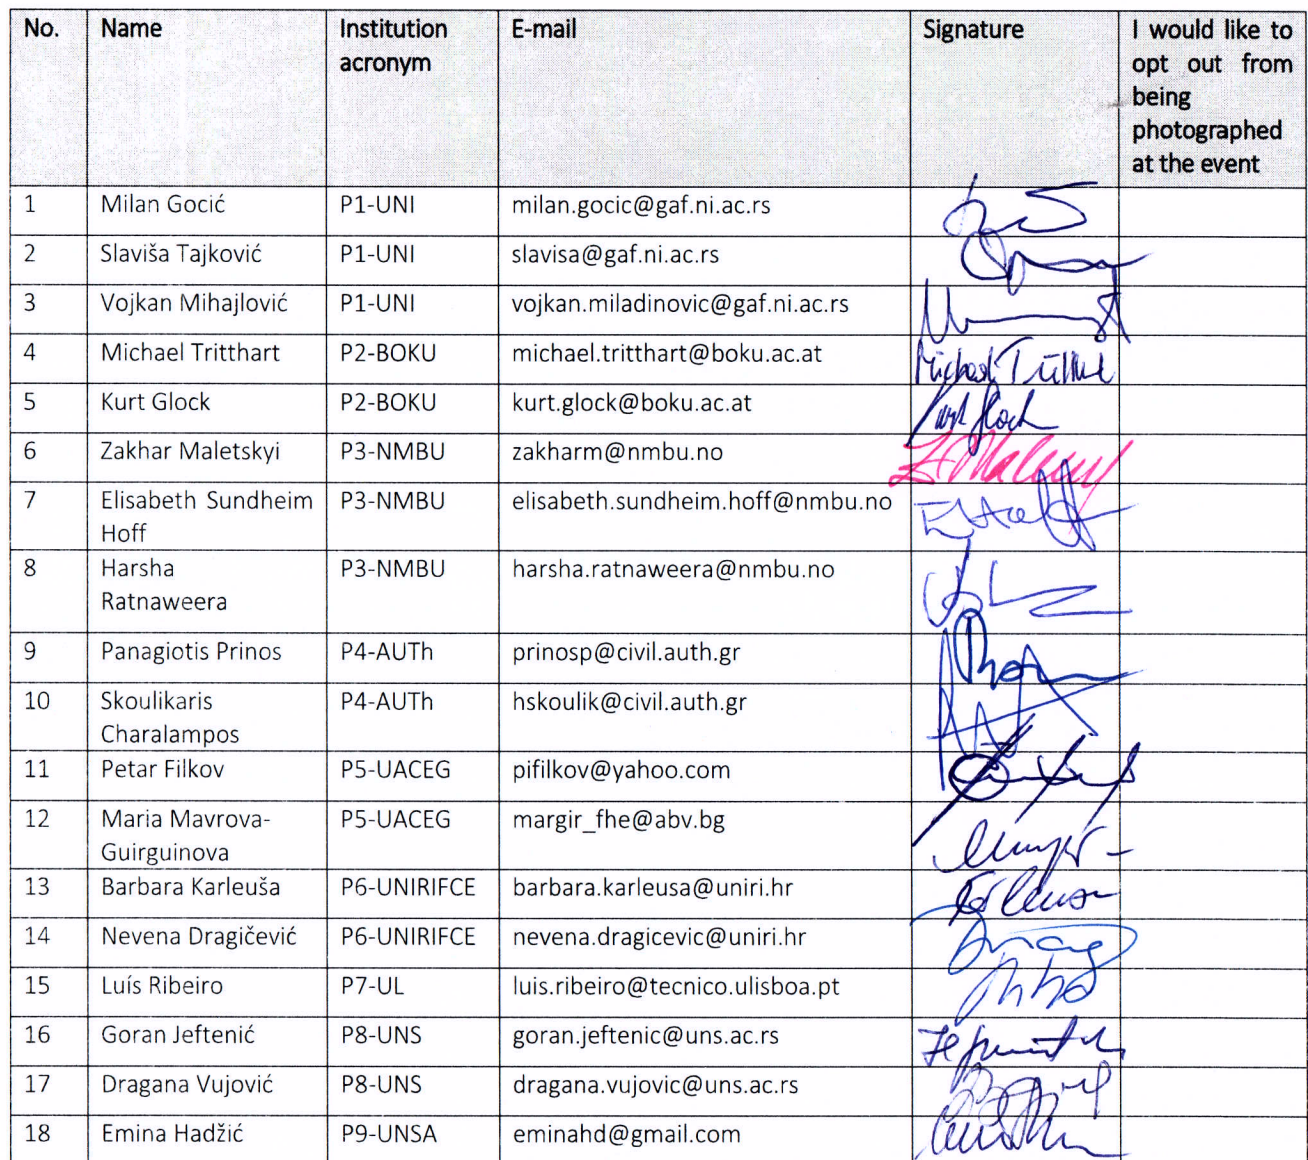 No. Name Institution E-mail Signature I would like to
acronym opt out from
being
photographed
at the event
1 Milan Gocić P1-UNI milan.gocic@gaf.ni.ac.rs
2 Slaviša Tajković P1-UNI slavisa@gaf.ni.ac.rs
3 Vojkan Mihajlović P1-UNI vojkan.miladinovic@gaf.ni.ac.rs
4 Michael Tritthart P2-BOKU michael.tritthart@boku.ac.at
5 Kurt Glock P2-BOKU kurt.glock@boku.ac.at Kurt Glock
6 Zakhar Maletskyi P3-NMBU zakharm@nmbu.no
7 Elisabeth Sundheim P3-NMBU elisabeth.sundheim.hoff@nmbu.no
Hoff
8 Harsha P3-NMBU harsha.ratnaweera@nmbu.no
Ratnaweera
9 Panagiotis Prinos P4-AUTh prinosp@civil.auth.gr
10 Skoulikaris P4-AUTh hskoulik@civil.auth.gr
Charalampos
11 Petar Filkov P5-UACEG pifilkov@yahoo.com
12 Maria Mavrova- P5-UACEG margir_fhe@abv.bg
Guirguinova
13 Barbara Karleuša P6-UNIRIFCE barbara.karleusa@uniri.hr
14 Nevena Dragičević P6-UNIRIFCE nevena.dragicevic@uniri.hr
15 Luís Ribeiro P7-UL luis.ribeiro@tecnico.ulisboa.pt
16 Goran Jeftenić P8-UNS goran.jeftenic@uns.ac.rs
17 Dragana Vujović P8-UNS dragana.vujovic@uns.ac.rs
18 Emina Hadžić P9-UNSA eminahd@gmail.com